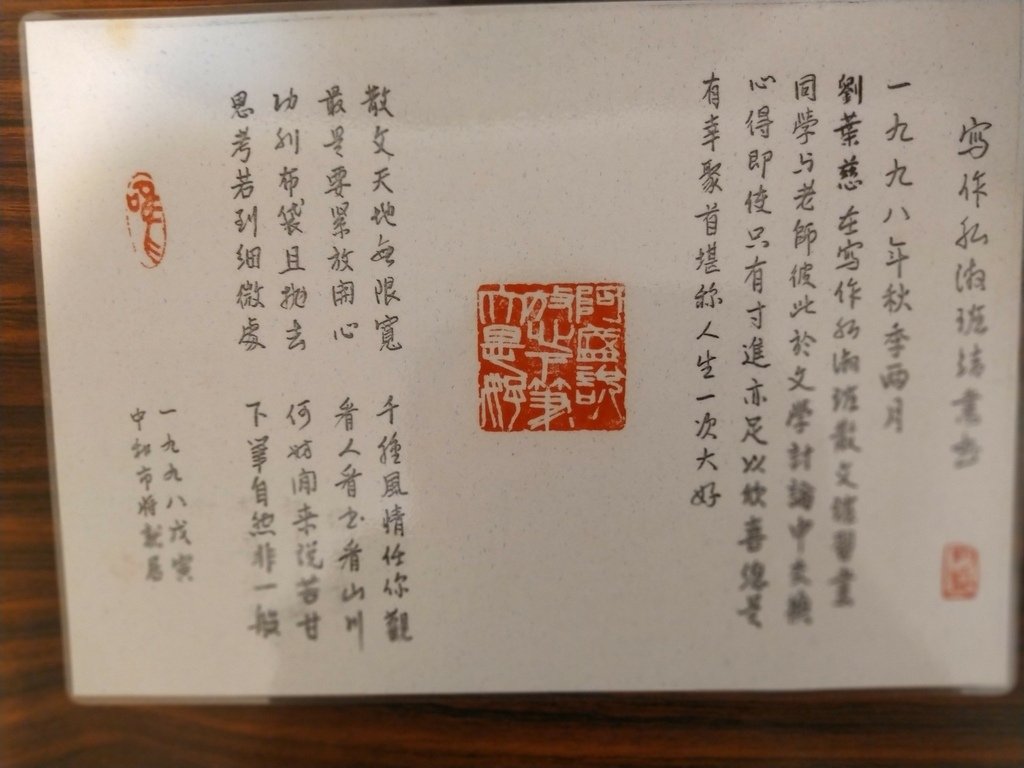 寫作私淑班結業書
一九九八年秋季兩月
劉葉慈在寫作私淑班散文縱習業
同學与老師彼此於文學討論中交換
心得即使只有寸進亦足以欣喜總是
有幸聚首堪称人生一次大好
阿盛說
散文下筆
散文天地無限寬 千種風情任你觀
最是要緊放開心 看人看书看山川
功利布袋且拋去 何妨闻来説苦甘
思考若到細微處 下筆自然非一般
一九九八戊寅
中和市將就居